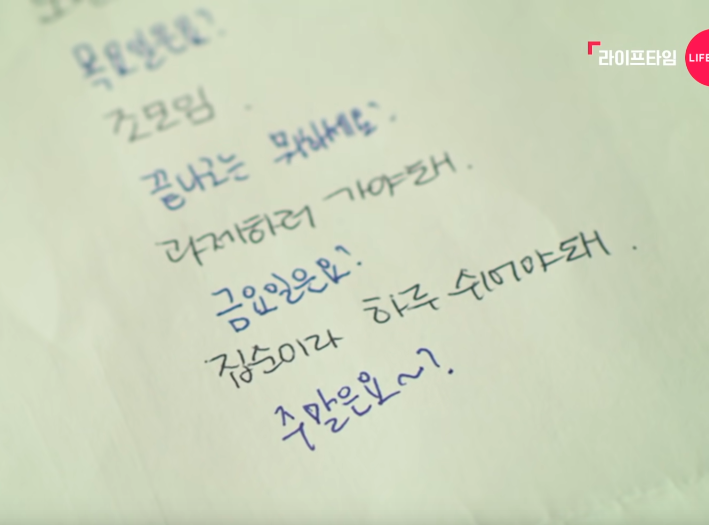 라이프타임
LIFE
목요일은요?
조모임.
끝나고는 뭐하세요?
과제하러 가야돼.
금요일은요?
집순이라 하루 쉬어야돼.
주말은요~?